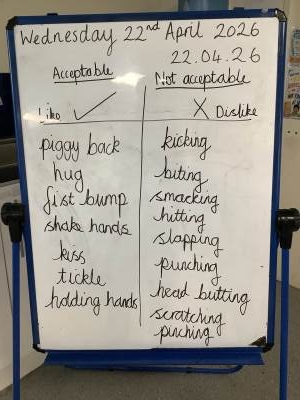 Wednesday 22nd April 2026
22.04.26
Acceptable
Not acceptable
Like ✓
X Dislike
piggy back
hug
fist bump
shake hands
kiss
tickle
holding hands
kicking
biting
smacking
hitting
slapping
punching
head butting
scratching
pinching